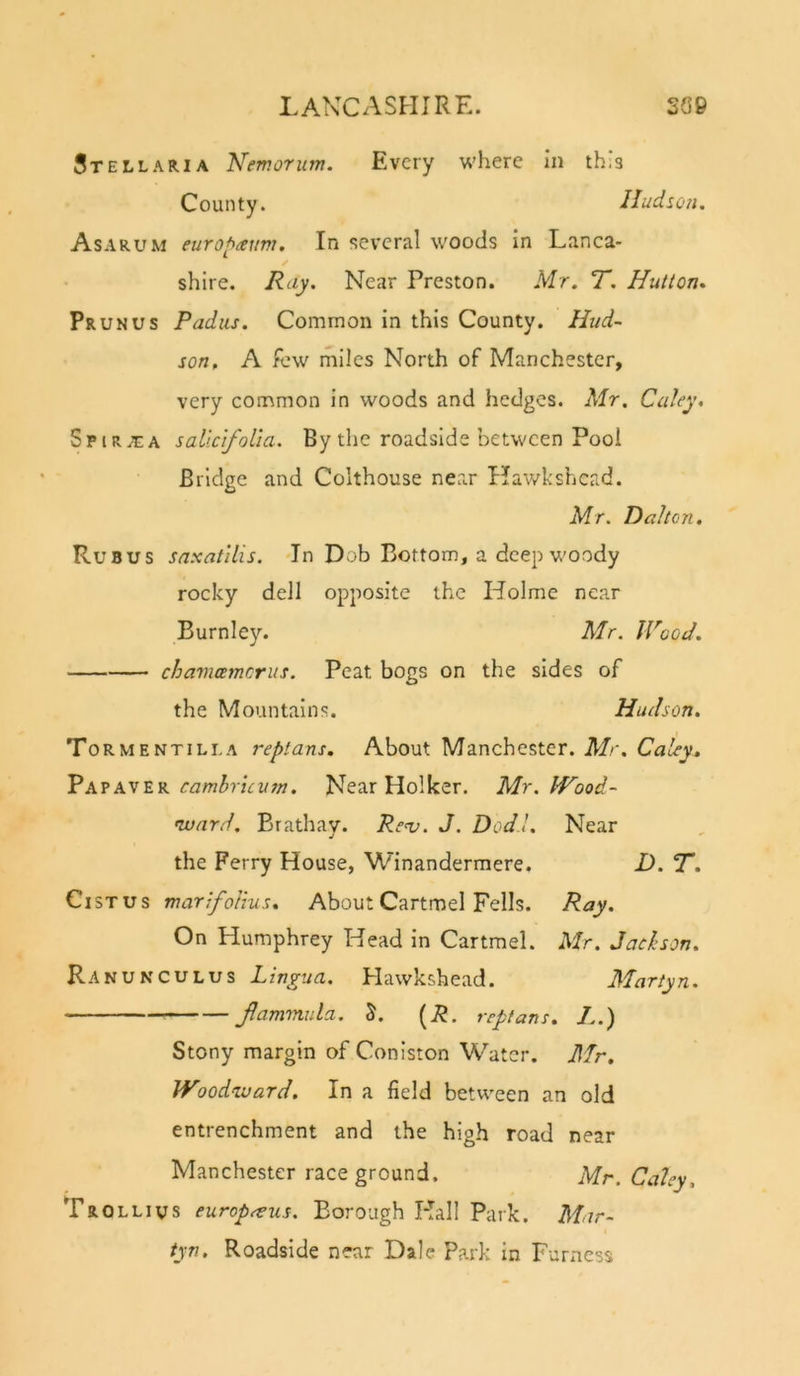 LANCASHIRE. 369
STELLARIA Nemorum. Every where in this
County. Hudson.
ASARUM europæum. In several woods in Lanca-
shire. Ray. Near Preston. Mr. T. Hutton.
PRUNUS Padus. Common in this County. Hud-
son, A few miles North of Manchester,
very common in woods and hedges. Mr. Caley.
SPIRÆA salicifolia. By the roadside between Pool
Bridge and Colthouse near Hawkshead.
Mr. Dalton.
RUBUS saxatilis. In Dob Bottom, a deep woody
rocky dell opposite the Holme near
Burnley. Mr. Wood.
——— chamæmorus. Peat bogs on the sides of
the Mountains. Hudson.
TORMENTILLA reptans. About Manchester. Mr. Caley.
PAPAVER cambricum. Near Holker. Mr. Wood-
ward. Brathay. Rev. J. Dodd. Near
the Ferry House, Winandermere. D. T.
CISTUS marifolius. About Cartmel Fells. Ray.
On Humphrey Head in Cartmel. Mr. Jackson.
RANUNCULUS Lingua. Hawkshead. Martyn.
——— flammula. δ. (R. reptans. L.)
Stony margin of Coniston Water. Mr.
Woodward. In a field between an old
entrenchment and the high road near
Manchester race ground. Mr. Caley,
TROLLIUS europæus. Borough Hall Park. Mar-
tyn. Roadside near Dale Park in Furness